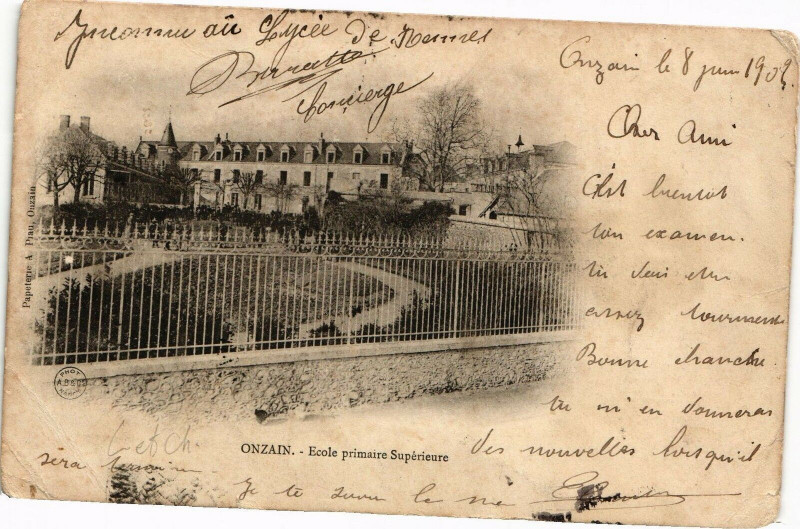 Inconnu au Lycée de Rennes
Concierge
Onzain le 8 juin 190
Cher Ami
C'est bientot
ton examen.
tu dois etre
assez tourmenté
Bonne chance
tu m'en donneras
des nouvelles lorsqu'il
sera
Je te serre la
Papeterie A. Piau, Onzain
PHOT
ONZAIN. - Ecole primaire Supérieure